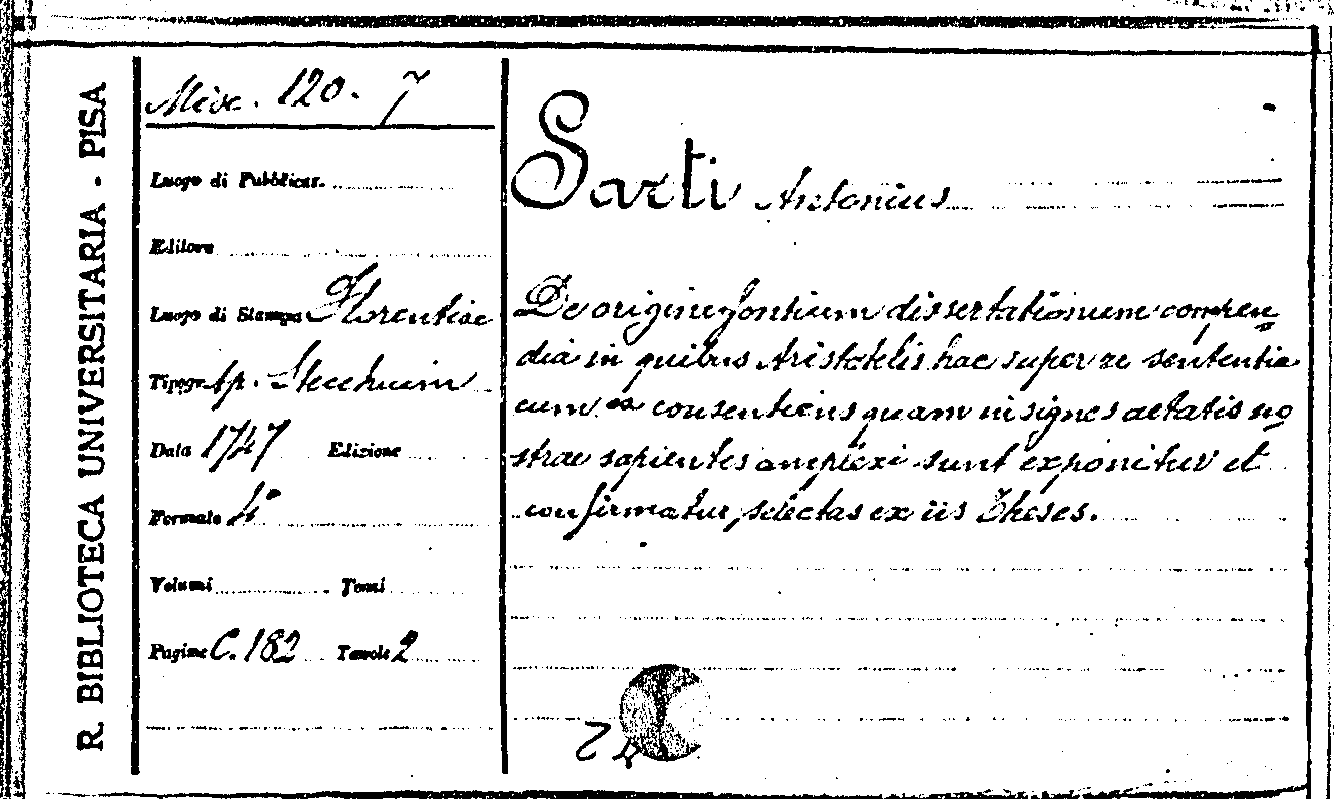 R. BIBLIOTECA UNIVERSITARIA - PISA
Misc. 120. 7
Luogo di Pubblicaz.
Editore
Luogo di Stampa Florentiae
Tipogr. ap. Stecchium
Data 1747 Edizione
Formato 4°
Volumi Tomi
Pagine C. 182 Tavole 2
Sarti Antonius
De origine fontium dissertationum compen=
dia in quibus Aristotelis hac super re sententia
cum ea consentiens quam insignes aetatis no
strae sapientes amplexi sunt exponitur et
confirmatur, selectas ex iis Theses.